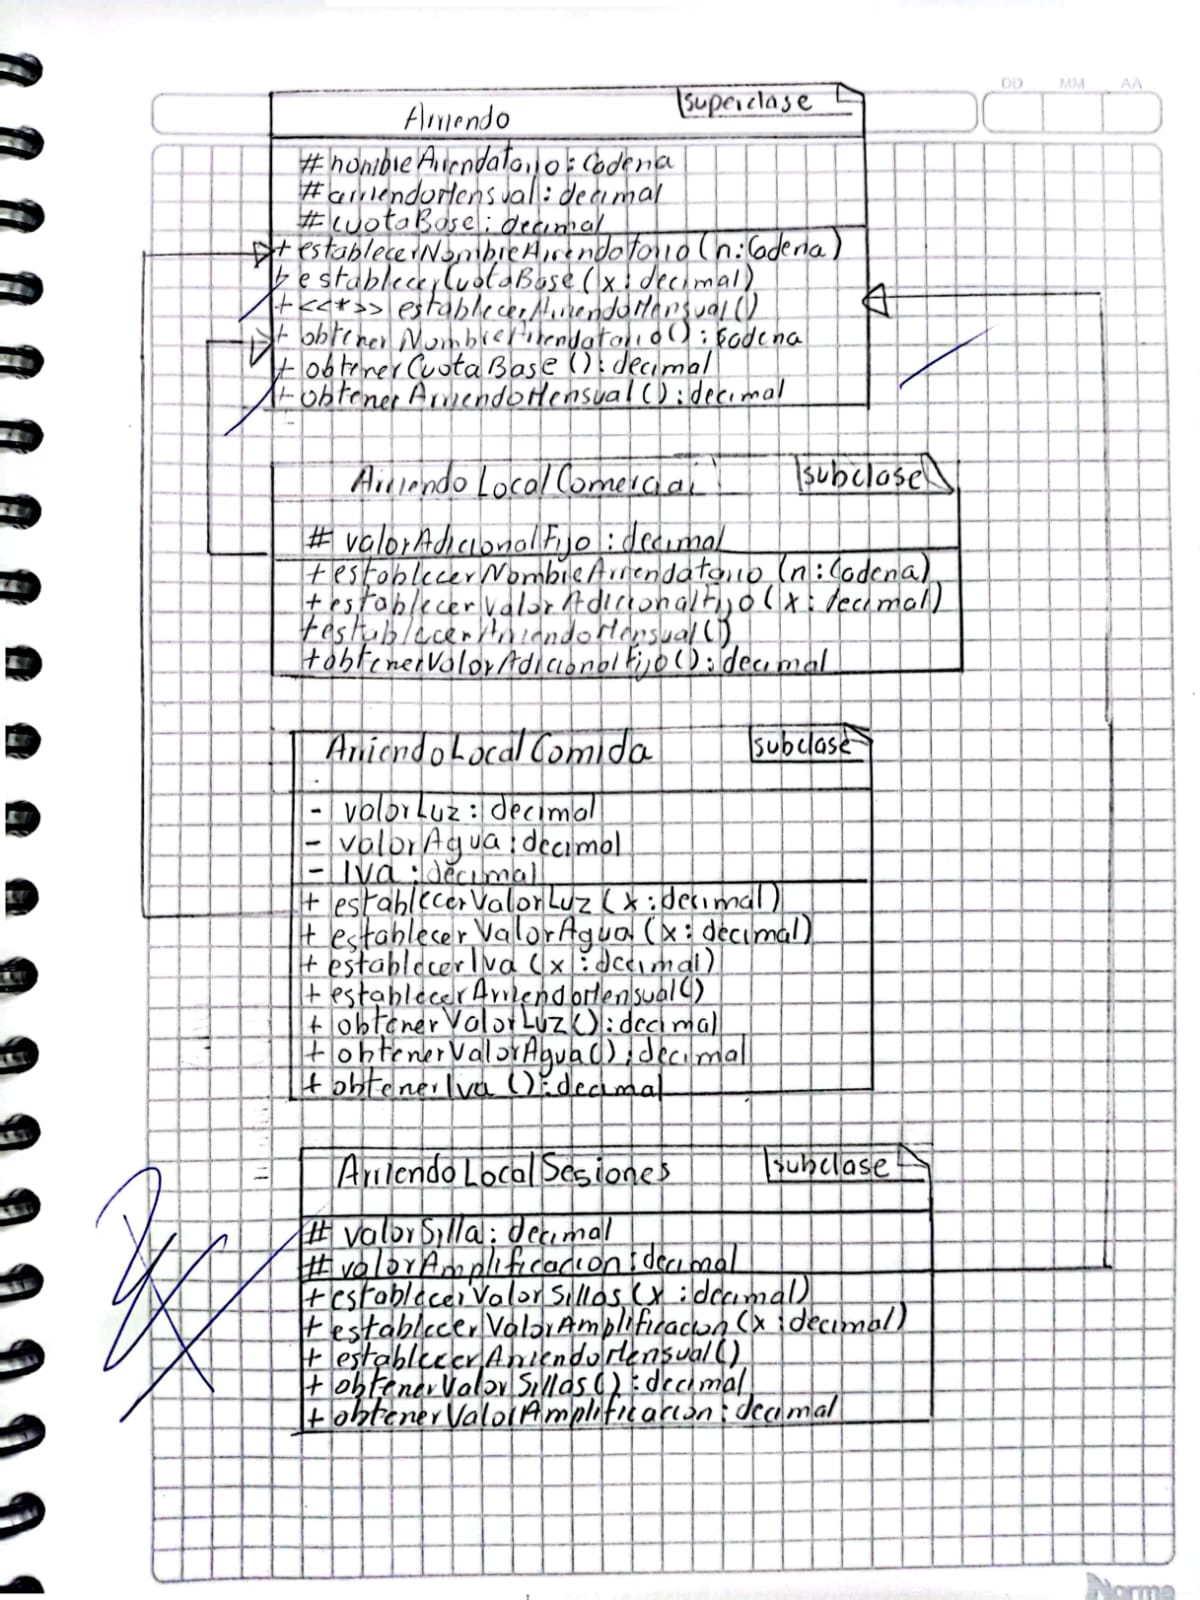 DD MM AA
Arriendo superclase
# nombreArrendatario : Cadena
# arriendoMensual : decimal
# cuotaBase : decimal
+ establecerNombreArrendatario (n : Cadena)
+ establecerCuotaBase (x : decimal)
+ <<*>> establecerArriendoMensual ()
+ obtenerNombreArrendatario () : Cadena
+ obtenerCuotaBase () : decimal
+ obtenerArriendoMensual () : decimal
ArriendoLocalComercial subclase
# valorAdicionalFijo : decimal
+ establecerNombreArrendatario (n : Cadena)
+ establecerValorAdicionalFijo (x : decimal)
+ establecerArriendoMensual ()
+ obtenerValorAdicionalFijo () : decimal
ArriendoLocalComida subclase
- valorLuz : decimal
- valorAgua : decimal
- Iva : decimal
+ establecerValorLuz (x : decimal)
+ establecerValorAgua (x : decimal)
+ establecerIva (x : decimal)
+ establecerArriendoMensual ()
+ obtenerValorLuz () : decimal
+ obtenerValorAgua () : decimal
+ obtenerIva () : decimal
ArriendoLocalSesiones subclase
# valorSilla : decimal
# valorAmplificacion : decimal
+ establecerValorSillas (x : decimal)
+ establecerValorAmplificacion (x : decimal)
+ establecerArriendoMensual ()
+ obtenerValorSillas () : decimal
+ obtenerValorAmplificacion : decimal
Norma